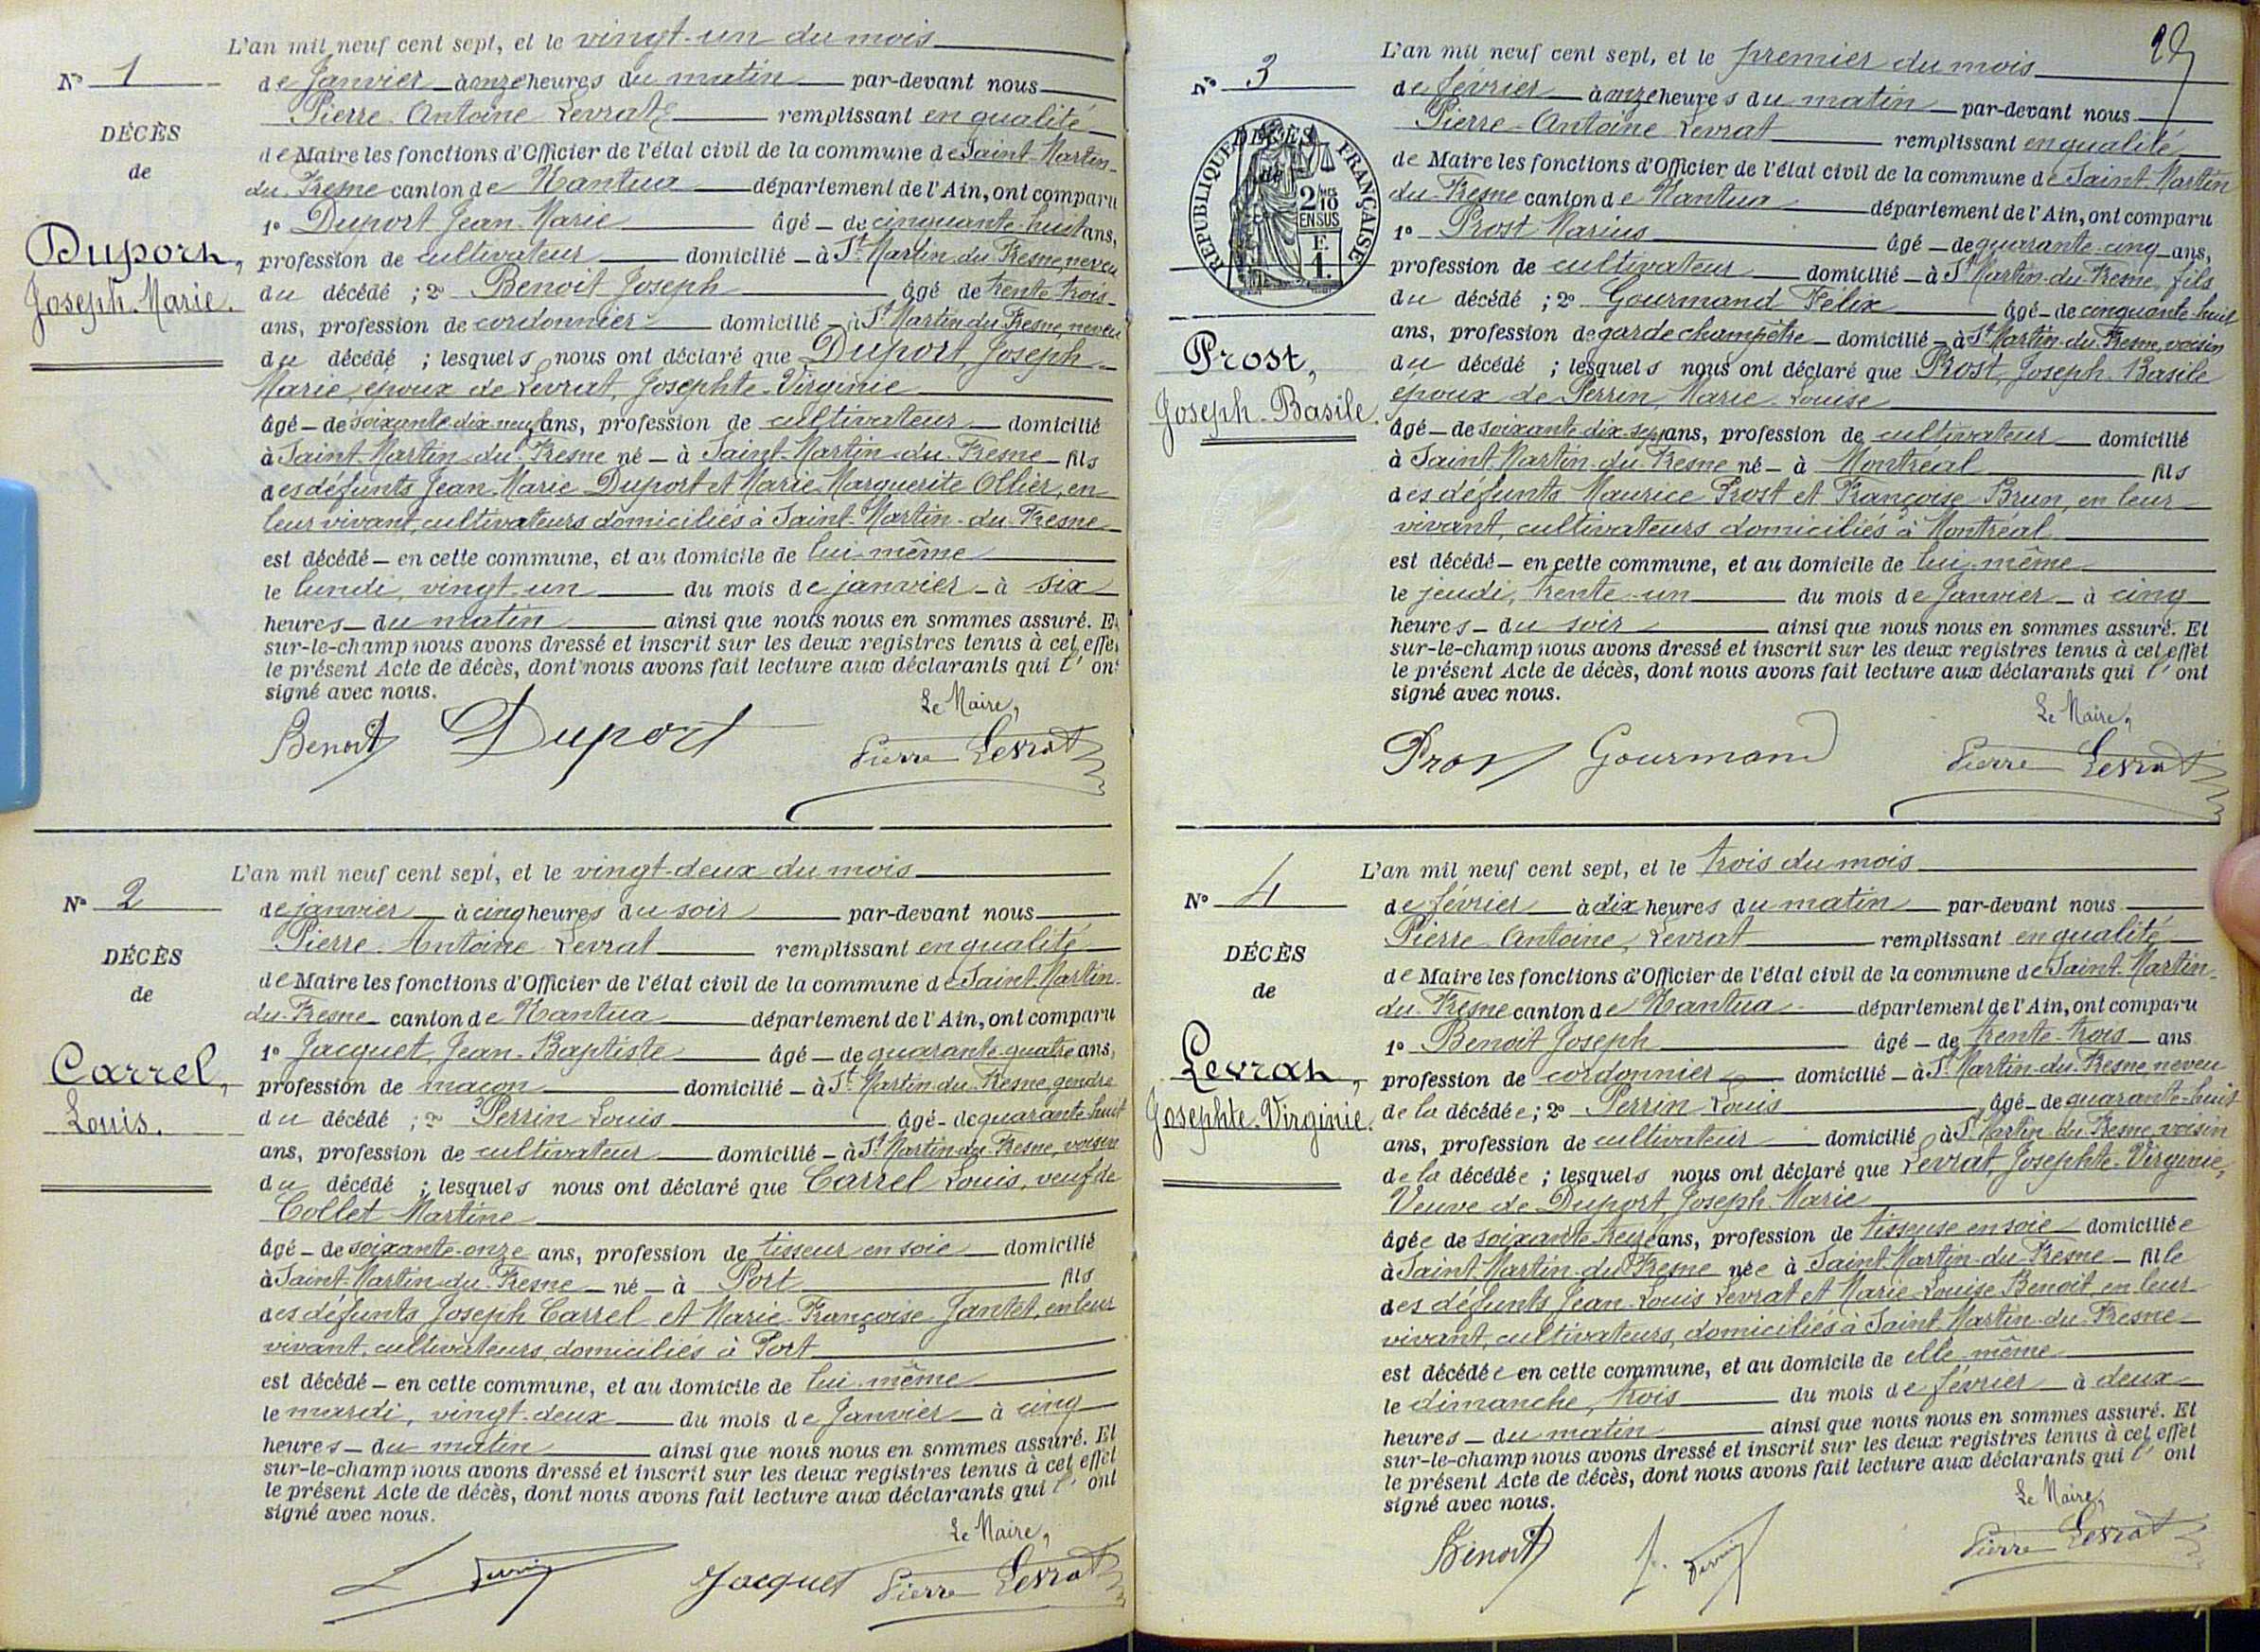 L'an mil neuf cent sept, et le vingt-un du mois
N° 1
de Janvier à onze heures du matin par-devant nous
Pierre-Antoine Levrat remplissant en qualité
DÉCÈS
de Maire les fonctions d'Officier de l'état civil de la commune de Saint-Martin-
de
du-Fresne canton de Nantua département de l'Ain, ont comparu
1° Duport Jean-Marie âgé de cinquante-huit ans,
Duport,
profession de cultivateur domicilié à St Martin-du-Fresne, neveu
Joseph-Marie.
du décédé ; 2° Benoit Joseph âgé de trente-trois
ans, profession de cordonnier domicilié à St Martin du Fresne, neveu
du décédé ; lesquels nous ont déclaré que Duport, Joseph-
Marie, époux de Levrat, Josephte-Virginie
âgé de soixante-dix-neuf ans, profession de cultivateur domicilié
à Saint-Martin-du-Fresne né à Saint-Martin-du-Fresne fils
des défunts Jean-Marie Duport et Marie-Marguerite Ollier, en
leur vivant, cultivateurs domiciliés à Saint-Martin-du-Fresne
est décédé en cette commune, et au domicile de lui-même
le lundi, vingt-un du mois de janvier à six
heures du matin ainsi que nous nous en sommes assuré. Et
sur-le-champ nous avons dressé et inscrit sur les deux registres tenus à cet effet
le présent Acte de décès, dont nous avons fait lecture aux déclarants qui l'ont
signé avec nous.
Le Maire,
Benoit Duport Pierre Levrat
L'an mil neuf cent sept, et le vingt-deux du mois
N° 2
de janvier à cinq heures du soir par-devant nous
Pierre-Antoine Levrat remplissant en qualité
DÉCÈS
de Maire les fonctions d'Officier de l'état civil de la commune de Saint-Martin-
de
du-Fresne canton de Nantua département de l'Ain, ont comparu
1° Jacquet Jean-Baptiste âgé de quarante-quatre ans,
Carrel,
profession de maçon domicilié à St Martin-du-Fresne, gendre
Louis.
du décédé ; 2° Perrin Louis âgé de quarante-huit
ans, profession de cultivateur domicilié à St Martin-du-Fresne, voisin
du décédé ; lesquels nous ont déclaré que Carrel Louis, veuf de
Collet Martine
âgé de soixante-onze ans, profession de tisseur en soie domicilié
à Saint-Martin-du-Fresne né à Port fils
des défunts Joseph Carrel et Marie-Françoise Jantet, en leur
vivant, cultivateurs, domiciliés à Port
est décédé en cette commune, et au domicile de lui-même
le mardi, vingt-deux du mois de Janvier à cinq
heures du matin ainsi que nous nous en sommes assuré. Et
sur-le-champ nous avons dressé et inscrit sur les deux registres tenus à cet effet
le présent Acte de décès, dont nous avons fait lecture aux déclarants qui l'ont
signé avec nous.
Le Maire,
L Perrin Jacquet Pierre Levrat
L'an mil neuf cent sept, et le premier du mois
N° 3
de février à onze heures du matin par-devant nous
Pierre-Antoine Levrat remplissant en qualité
DÉCÈS
de
RÉPUBLIQUE FRANÇAISE
2 MES 10
EN SUS
F.
1.
de Maire les fonctions d'Officier de l'état civil de la commune de Saint-Martin
du-Fresne canton de Nantua département de l'Ain, ont comparu
1° Prost Marius âgé de quarante-cinq ans,
profession de cultivateur domicilié à St Martin-du-Fresne, fils
du décédé ; 2° Gourmand Félix âgé de cinquante-huit
ans, profession de garde champêtre domicilié à St Martin-du-Fresne, voisin
Prost,
du décédé ; lesquels nous ont déclaré que Prost, Joseph-Basile
Joseph-Basile.
époux de Perrin, Marie-Louise
âgé de soixante-dix-sept ans, profession de cultivateur domicilié
à Saint-Martin-du-Fresne né à Montréal fils
des défunts Maurice Prost et Françoise Brun, en leur
vivant, cultivateurs domiciliés à Montréal
est décédé en cette commune, et au domicile de lui-même
le jeudi, trente-un du mois de Janvier à cinq
heures du soir ainsi que nous nous en sommes assuré. Et
sur-le-champ nous avons dressé et inscrit sur les deux registres tenus à cet effet
le présent Acte de décès, dont nous avons fait lecture aux déclarants qui l'ont
signé avec nous.
Le Maire,
Prost Gourmand Pierre Levrat
L'an mil neuf cent sept, et le trois du mois
N° 4
de février à dix heures du matin par-devant nous
Pierre-Antoine Levrat remplissant en qualité
DÉCÈS
de Maire les fonctions d'Officier de l'état civil de la commune de Saint-Martin-
de
du-Fresne canton de Nantua département de l'Ain, ont comparu
1° Benoit Joseph âgé de trente-trois ans
Levrat,
profession de cordonnier domicilié à St Martin-du-Fresne, neveu
Josephte-Virginie.
de la décédée ; 2° Perrin Louis âgé de quarante-huit
ans, profession de cultivateur domicilié à St Martin-du-Fresne, voisin
de la décédée ; lesquels nous ont déclaré que Levrat, Josephte-Virginie,
Veuve de Duport, Joseph-Marie
âgée de soixante-treize ans, profession de tisseuse en soie domiciliée
à Saint-Martin-du-Fresne née à Saint-Martin-du-Fresne fille
des défunts Jean-Louis Levrat et Marie-Louise Benoit, en leur
vivant, cultivateurs, domiciliés à Saint-Martin-du-Fresne
est décédée en cette commune, et au domicile de elle-même
le dimanche, trois du mois de février à deux
heures du matin ainsi que nous nous en sommes assuré. Et
sur-le-champ nous avons dressé et inscrit sur les deux registres tenus à cet effet
le présent Acte de décès, dont nous avons fait lecture aux déclarants qui l'ont
signé avec nous.
Le Maire,
Benoit L. Perrin Pierre Levrat